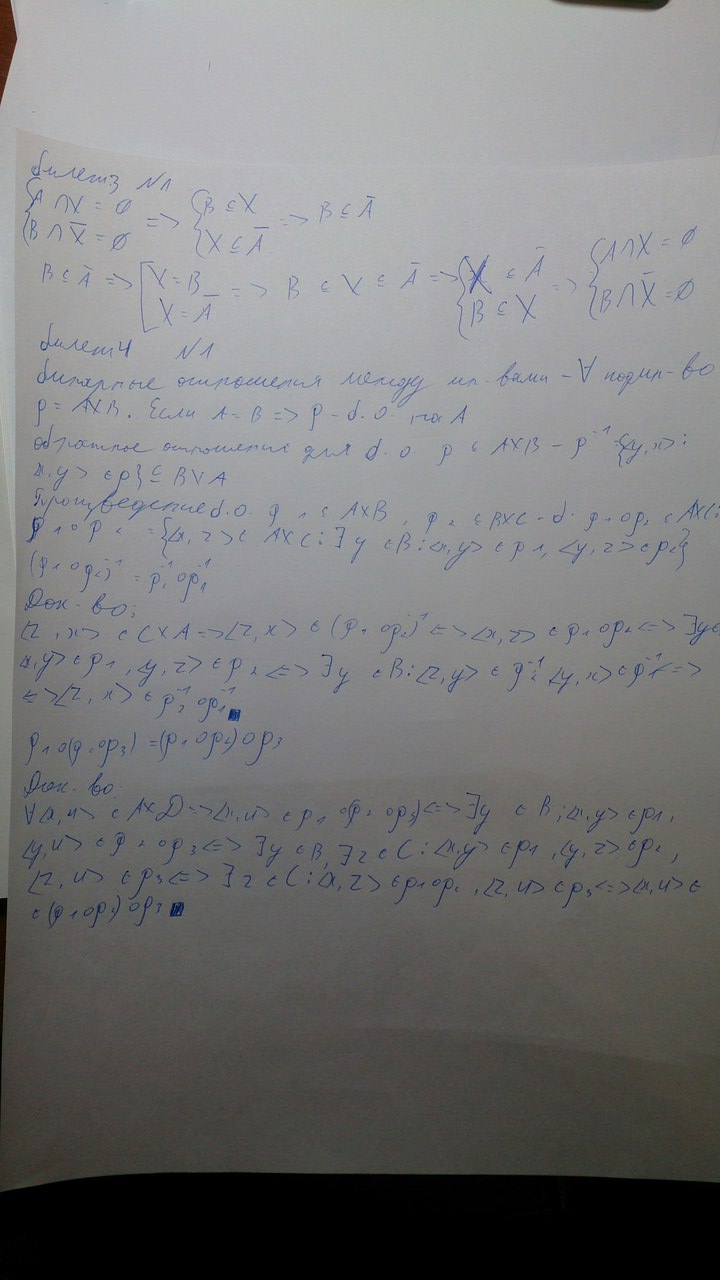 билет3 №1
{A ∩ X = ∅ => {B ⊆ X => B ⊆ Ā
{B ∩ X̄ = ∅ {X ⊆ Ā
B ⊆ Ā => [X = B => B ⊆ X ⊆ Ā => {X ⊆ Ā => {A ∩ X = ∅
[X = Ā {B ⊆ X {B ∩ X̄ = ∅
билет4 №1
бинарные отношения между мн-вами - ∀ подмн-во
ρ = A×B. Если A = B => ρ - б.о. на A
обратное отношение для б.о ρ ⊆ A×B - ρ⁻¹ {<y,x>:
<x,y> ∈ρ} ⊆ B×A
Произведение б.о. ρ₁ ⊆ A×B, ρ₂ ⊆ B×C - б. ρ₁∘ρ₂ ⊆ A×C:
ρ₁∘ρ₂ = {<x,z> ∈ A×C: ∃y ∈B: <x,y> ∈ρ₁, <y,z> ∈ρ₂}
(ρ₁∘ρ₂)⁻¹ = ρ₂⁻¹∘ρ₁⁻¹
Док-во:
<z,x> ∈ C×A => <z,x> ∈ (ρ₁∘ρ₂)⁻¹ <=> <x,z> ∈ ρ₁∘ρ₂ <=> ∃y∈
<x,y> ∈ρ₁, <y,z> ∈ ρ₂ <=> ∃y ∈B: <z,y> ∈ ρ₂⁻¹ <y,x> ∈ρ₁⁻¹ <=>
<=> <z,x> ∈ ρ₂⁻¹∘ρ₁⁻¹
ρ₁∘(ρ₂∘ρ₃) = (ρ₁∘ρ₂)∘ρ₃
Док-во
∀<x,u> ∈ A×D => <x,u> ∈ ρ₁∘(ρ₂∘ρ₃) <=> ∃y ∈ B: <x,y> ∈ρ₁,
<y,u> ∈ ρ₂∘ρ₃ <=> ∃y ∈ B, ∃z ∈ C: <x,y> ∈ρ₁, <y,z> ∈ρ₂,
<z,u> ∈ρ₃ <=> ∃z ∈ C: <x,z> ∈ρ₁∘ρ₂, <z,u> ∈ρ₃ <=> <x,u> ∈
∈ (ρ₁∘ρ₂)∘ρ₃